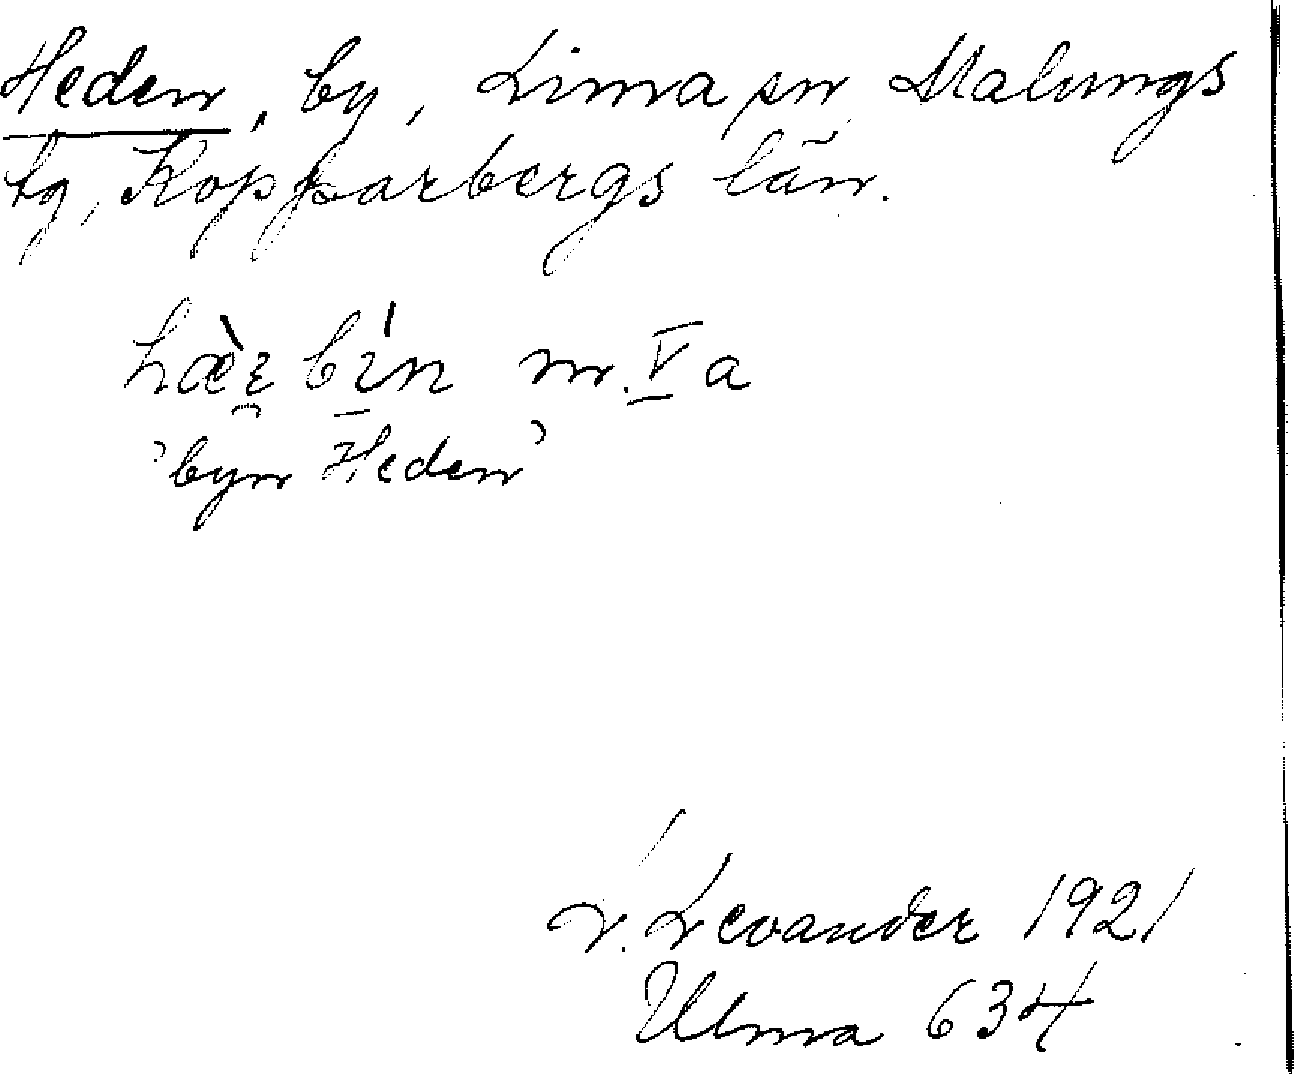 Heden, by, Lima sn Malungs
tg, Kopparbergs län.
m. V a
'byn Heden'
Levander 1921
Ulma 634